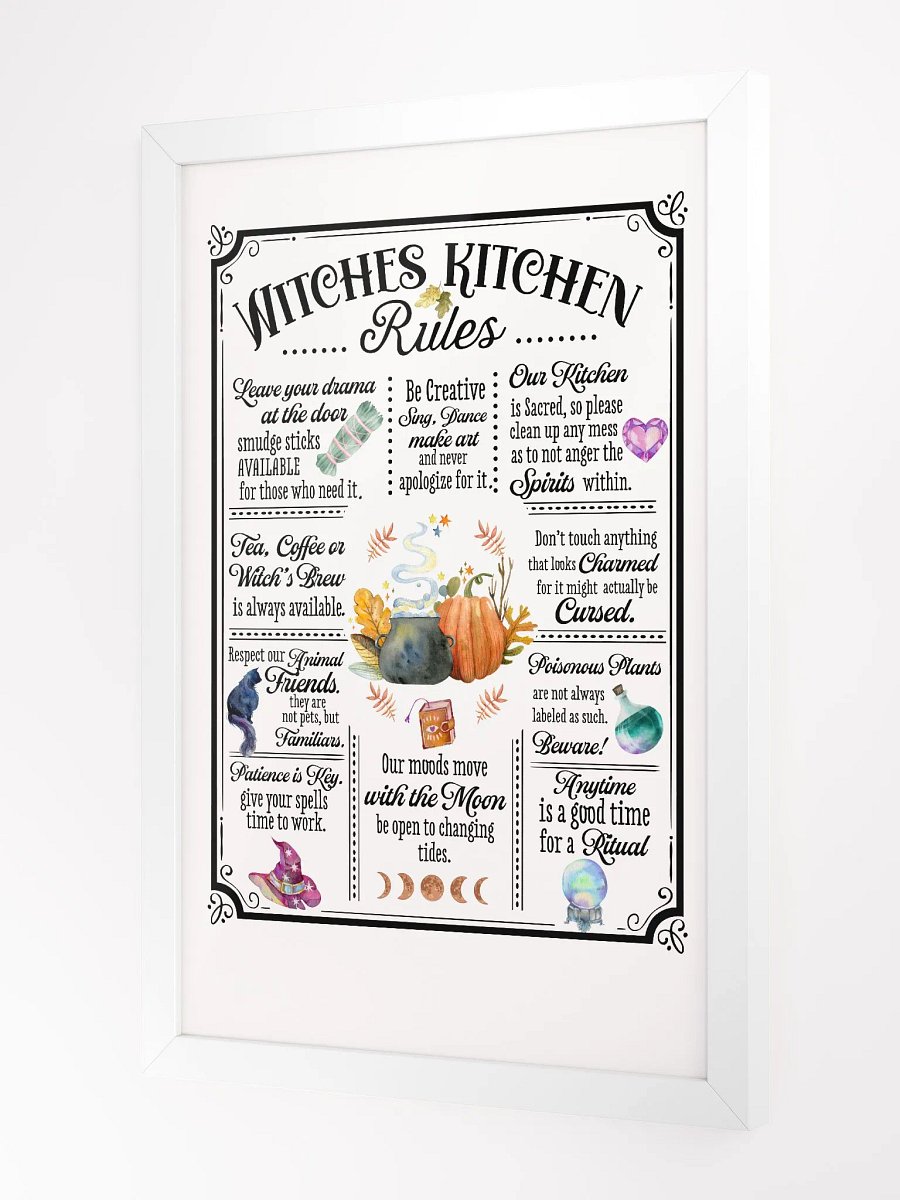 WITCHES KITCHEN
Rules
Leave your drama
at the door
smudge sticks
AVAILABLE
for those who need it.
Be Creative
Sing, Dance
make art
and never
apologize for it.
Our Kitchen
is Sacred, so please
clean up any mess
as to not anger the
Spirits within.
Tea, Coffee or
Witch's Brew
is always available.
Don't touch anything
that looks Charmed
for it might actually be
Cursed.
Respect our Animal
Friends.
they are
not pets, but
Familiars.
Poisonous Plants
are not always
labeled as such.
Beware!
Patience is Key.
give your spells
time to work.
Our moods move
with the Moon
be open to changing
tides.
Anytime
is a good time
for a Ritual